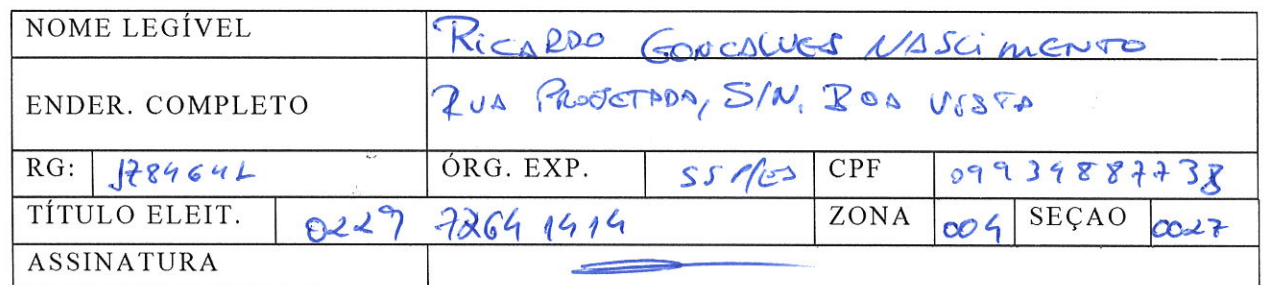 NOME LEGÍVEL RICARDO GONCALVES NASCIMENTO
ENDER. COMPLETO RUA PROJETADA, S/N. BOA VISTA
RG: 1784641 ÓRG. EXP. SSP/ES CPF 09934887738
TÍTULO ELEIT. 0229 7264 1414 ZONA 004 SEÇAO 0027
ASSINATURA